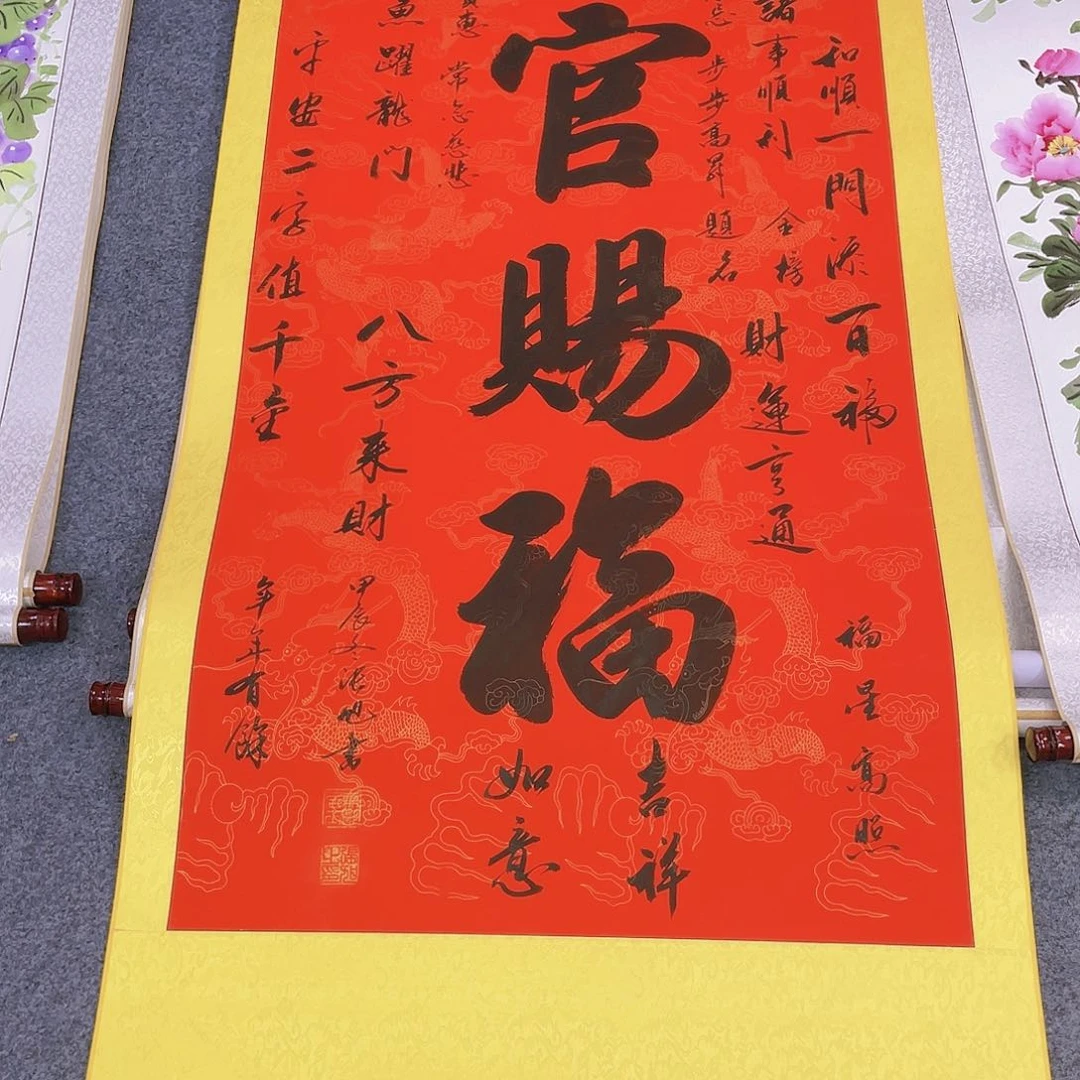 和順一門添百福
福星高照
諸事順利
金榜
財運亨通
步步高昇
題名
吉祥
官賜福
如意
常念慈悲
魚躍龍門
八方來財
甲辰文浩旭書
平安二字值千金
年年有餘